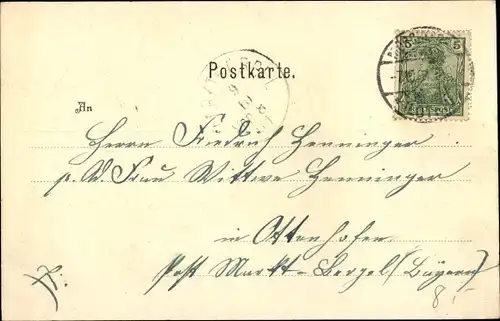 Postkarte.
5 5
An
Herrn Friedrich Henninger
p. Ad. Frau Wittwe Henninger
in Ottenhofen
Post Markt-Bergel (Bayern)